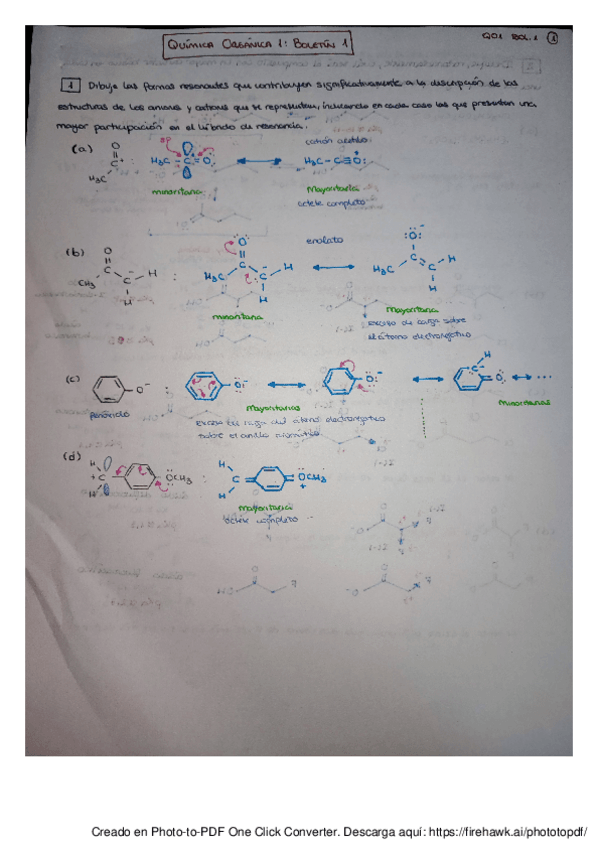 QUÍMICA ORGÁNICA 1: BOLETÍN 1
QO1 BOL.1 1
1 Dibuje las formas resonantes que contribuyen significativamente a la descripción de las
estructuras de los aniones y cationes que se representan, indicando en cada caso las que presentan una
mayor participación en el híbrido de resonancia.
(a) O C+ H3C : sp H3C-C=O: H3C-C≡O: catión acetilo
minoritaria Mayoritaria
octete completo
(b) O C CH3 C H H : O H3C C C H H enolato :O: H3C C C H H
minoritaria Mayoritaria
exceso de carga sobre
el átomo electronegativo
(c) O- : O:- O:- H C- O ...
fenóxido Mayoritarias Minoritarias
sobre el anillo aromático
(d) H +C H OCH3 : H C H OCH3 +
mayoritaria
octete completo
Creado en Photo-to-PDF One Click Converter. Descarga aquí: https://firehawk.ai/phototopdf/